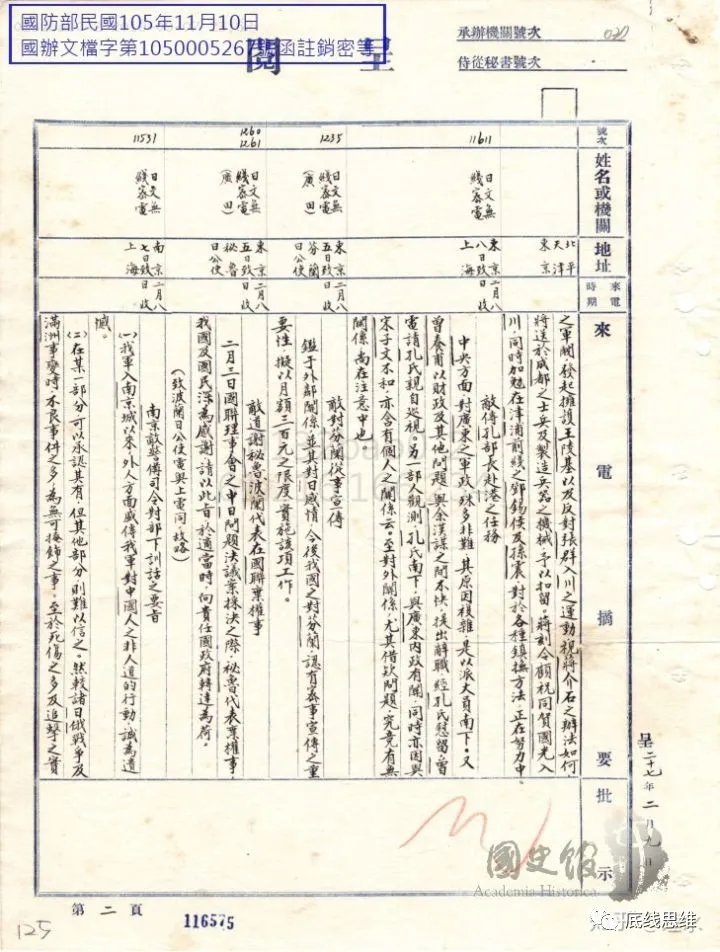 國防部民國105年11月10日
國辦文檔字第105000526 號函註銷密等
呈閱
承辦機關號次
侍從秘書號次
呈 二十七年二月九日
號次
姓名或機關
地址
來電時期
來電摘要
批示
北平
天津
東京
之軍閥發起擁護王陵基以及反對張群入川之運動視蔣介石之辦法如何
將送於成都之士兵及製造兵器之機械予以扣留。蔣刻令顧祝同賀國光入
川,同時加魅在津浦前綫之鄧錫侯及孫震對於各種鎮撫方法,正在努力中。
11611
日文無綫密電
東京二月八日致上海
八日收
敵傳孔部長赴港之任務
中央方面對廣東之軍政殊多非難,其原因複雜,是以派大員南下。又
曾養甫以財政及其他問題與余漢謀之間不快,提出辭職經孔氏慰留,曾
電請孔氏親自巡視。另一部人觀測孔氏南下,與廣東內政有關,同時亦因與
宋子文不和,亦含有個人之關係云。至對外關係,尤其借欵問題,究竟有無
關係尚在注意中也
1235
日文無綫密電(廣田)
東京二月八五日致芬蘭日公使
日收
敵對芬蘭從事宣傳
鑑于外部關係並其對日感情,今後我國之對芬蘭認有密事宣傳之重
要性,擬以月額三百元之限度實施該項工作。
1260
1261
日文無綫密電(廣田)
東京二月八五日致秘魯日公使
日收
敵道謝秘魯波蘭代表在國聯棄權事
二月三日國聯理事會之中日問題決議案採決之際,秘魯代表棄權事,
我國及國民深為感謝,請以此旨於適當時向貴任國政府轉達為荷。
(致波蘭日公使電與上電同故略)
11531
日文無綫密電
南京二月八七日致上海
日收
南京敵警備司令對部下訓話之要旨
(一)我軍入南京城以來,外人方面盛傳我軍對中國人之非人道的行動,誠為遺
憾。
(二)在某一部分可以承認其有,但其他部分則難以信之。然較諸日俄戰爭及
滿洲事變時,不良事件之多,為無可掩飾之事。至於死傷之多及追擊之實
第二頁
116575
125
國史館
Academia Historica
底线思维